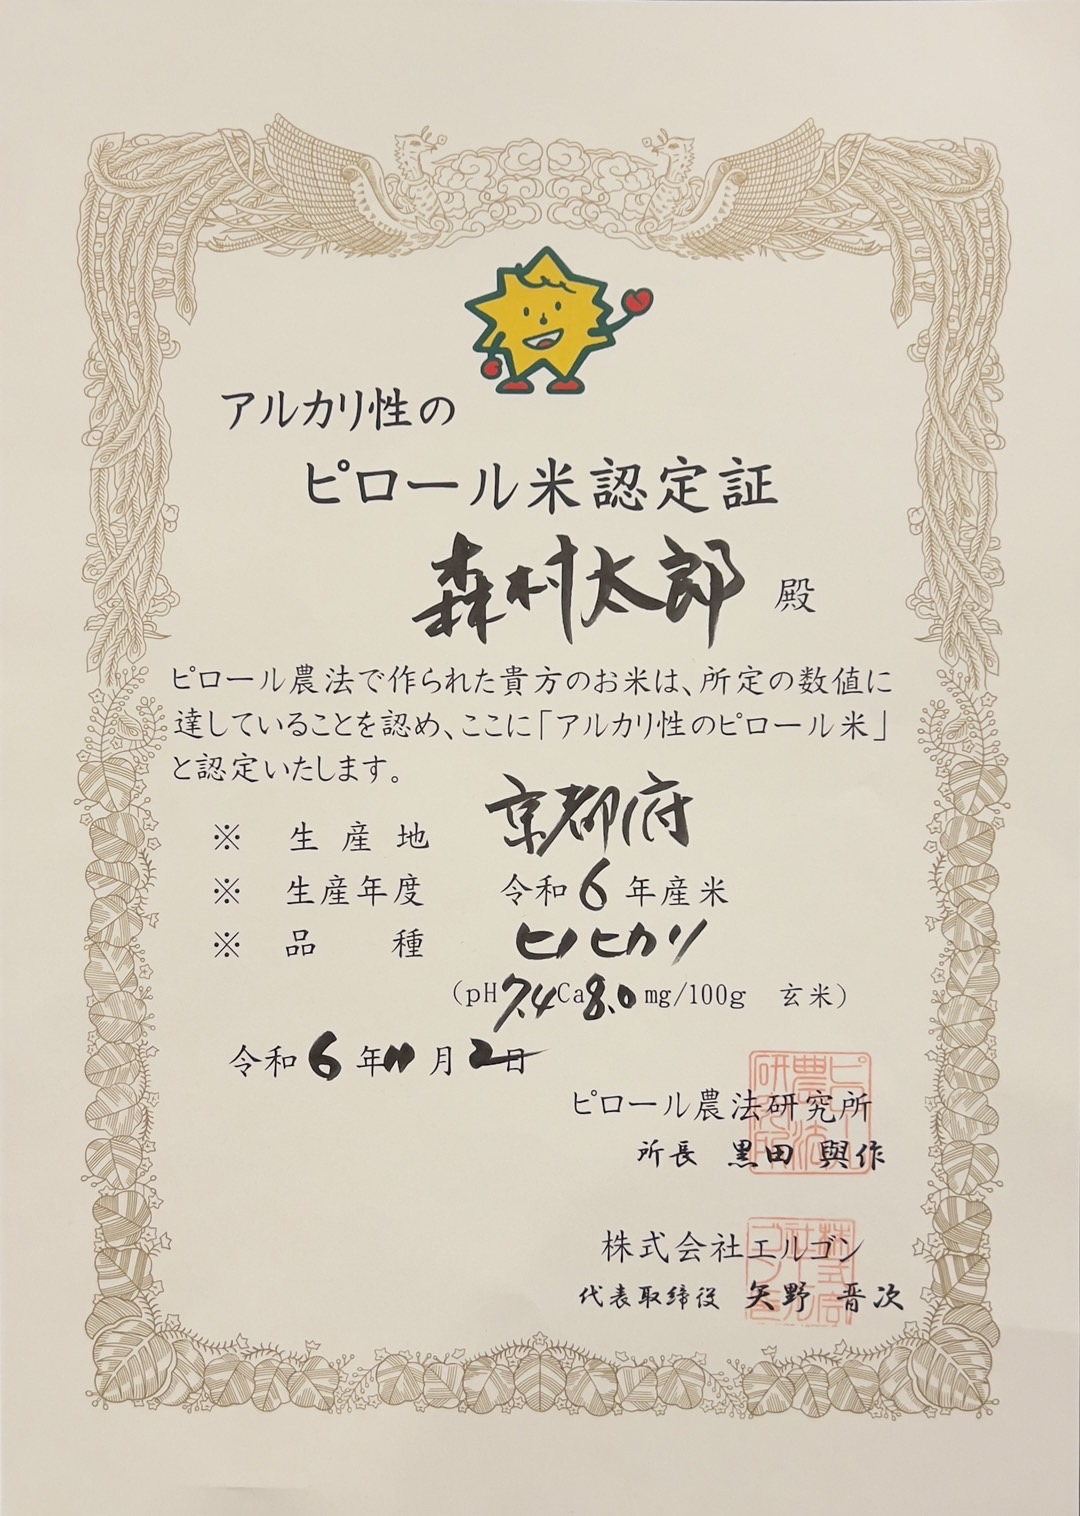 アルカリ性の
ピロール米認定証
森村太郎 殿
ピロール農法で作られた貴方のお米は、所定の数値に
達していることを認め、ここに「アルカリ性のピロール米」
と認定いたします。
※ 生産地 京都府
※ 生産年度 令和6年産米
※ 品種 ヒノヒカリ
(pH7.4Ca8.0mg/100g 玄米)
令和6年11月2日
ピロール農法研究所
所長 黒田 與作
株式会社エルゴン
代表取締役 矢野 晋次